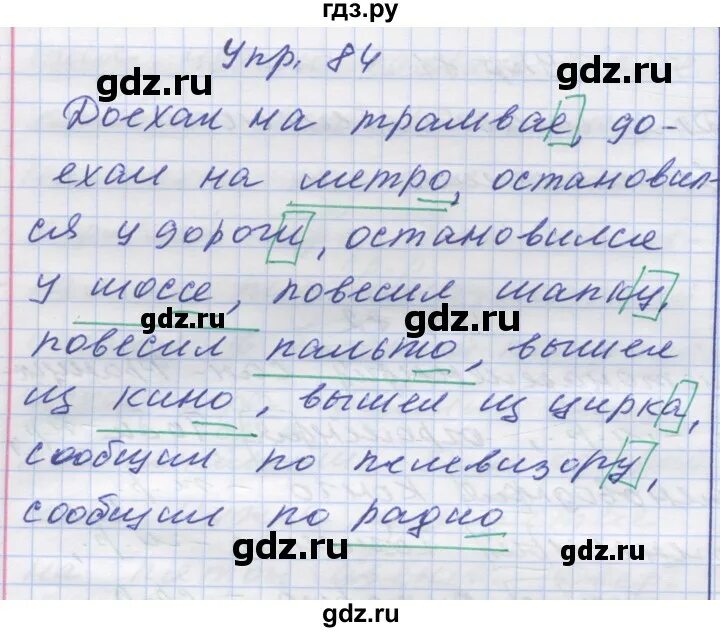 гдз.ру
Упр. 84
gdz.ru
gdz.ru
Доехал на трамвае, до-
ехал на метро, остановил-
ся у дороги, остановился
у шоссе, повесил шапку,
gdz.ru
gdz.ru
повесил пальто, вышел
из кино, вышел из цирка,
сообщил по телевизору,
сообщил по радио
gdz.ru
gdz.ru
gdz.ru